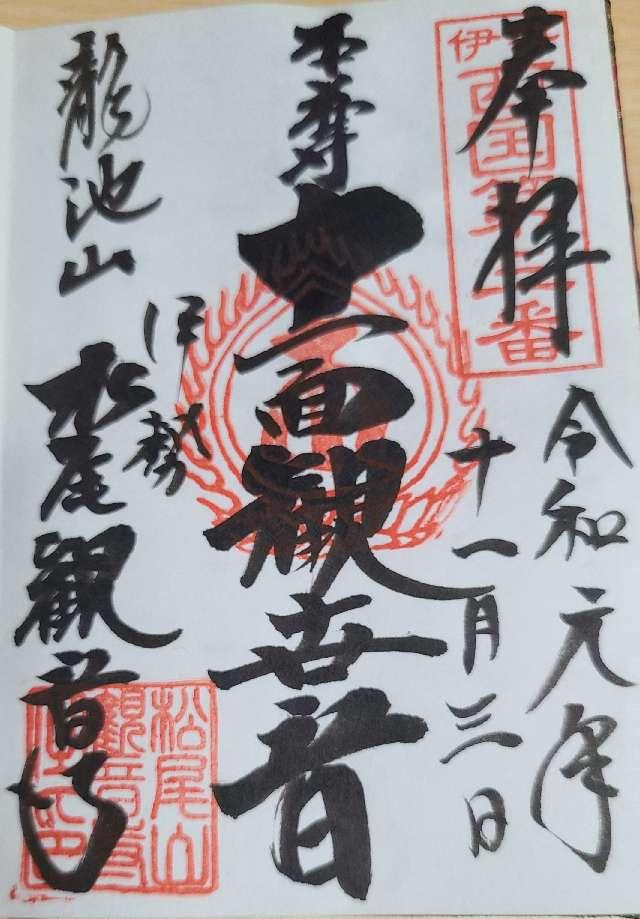 奉拝
伊 西国第 番
令和元年
十一月三日
本尊
十一面観世音
伊勢
龍池山
松尾観音寺
松尾山
観音寺